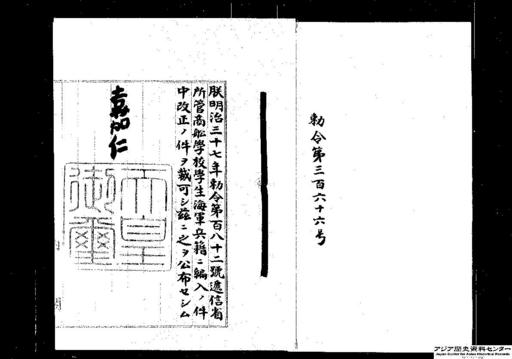 勅令第三百六十六号
朕明治三十七年勅令第百八十二號遞信省
所管商船學校學生海軍兵籍ニ編入ノ件
中改正ノ件ヲ裁可シ玆ニ之ヲ公布セシム
嘉仁
天皇
御璽
アジア歴史資料センター
Japan Center for Asian Historical Records